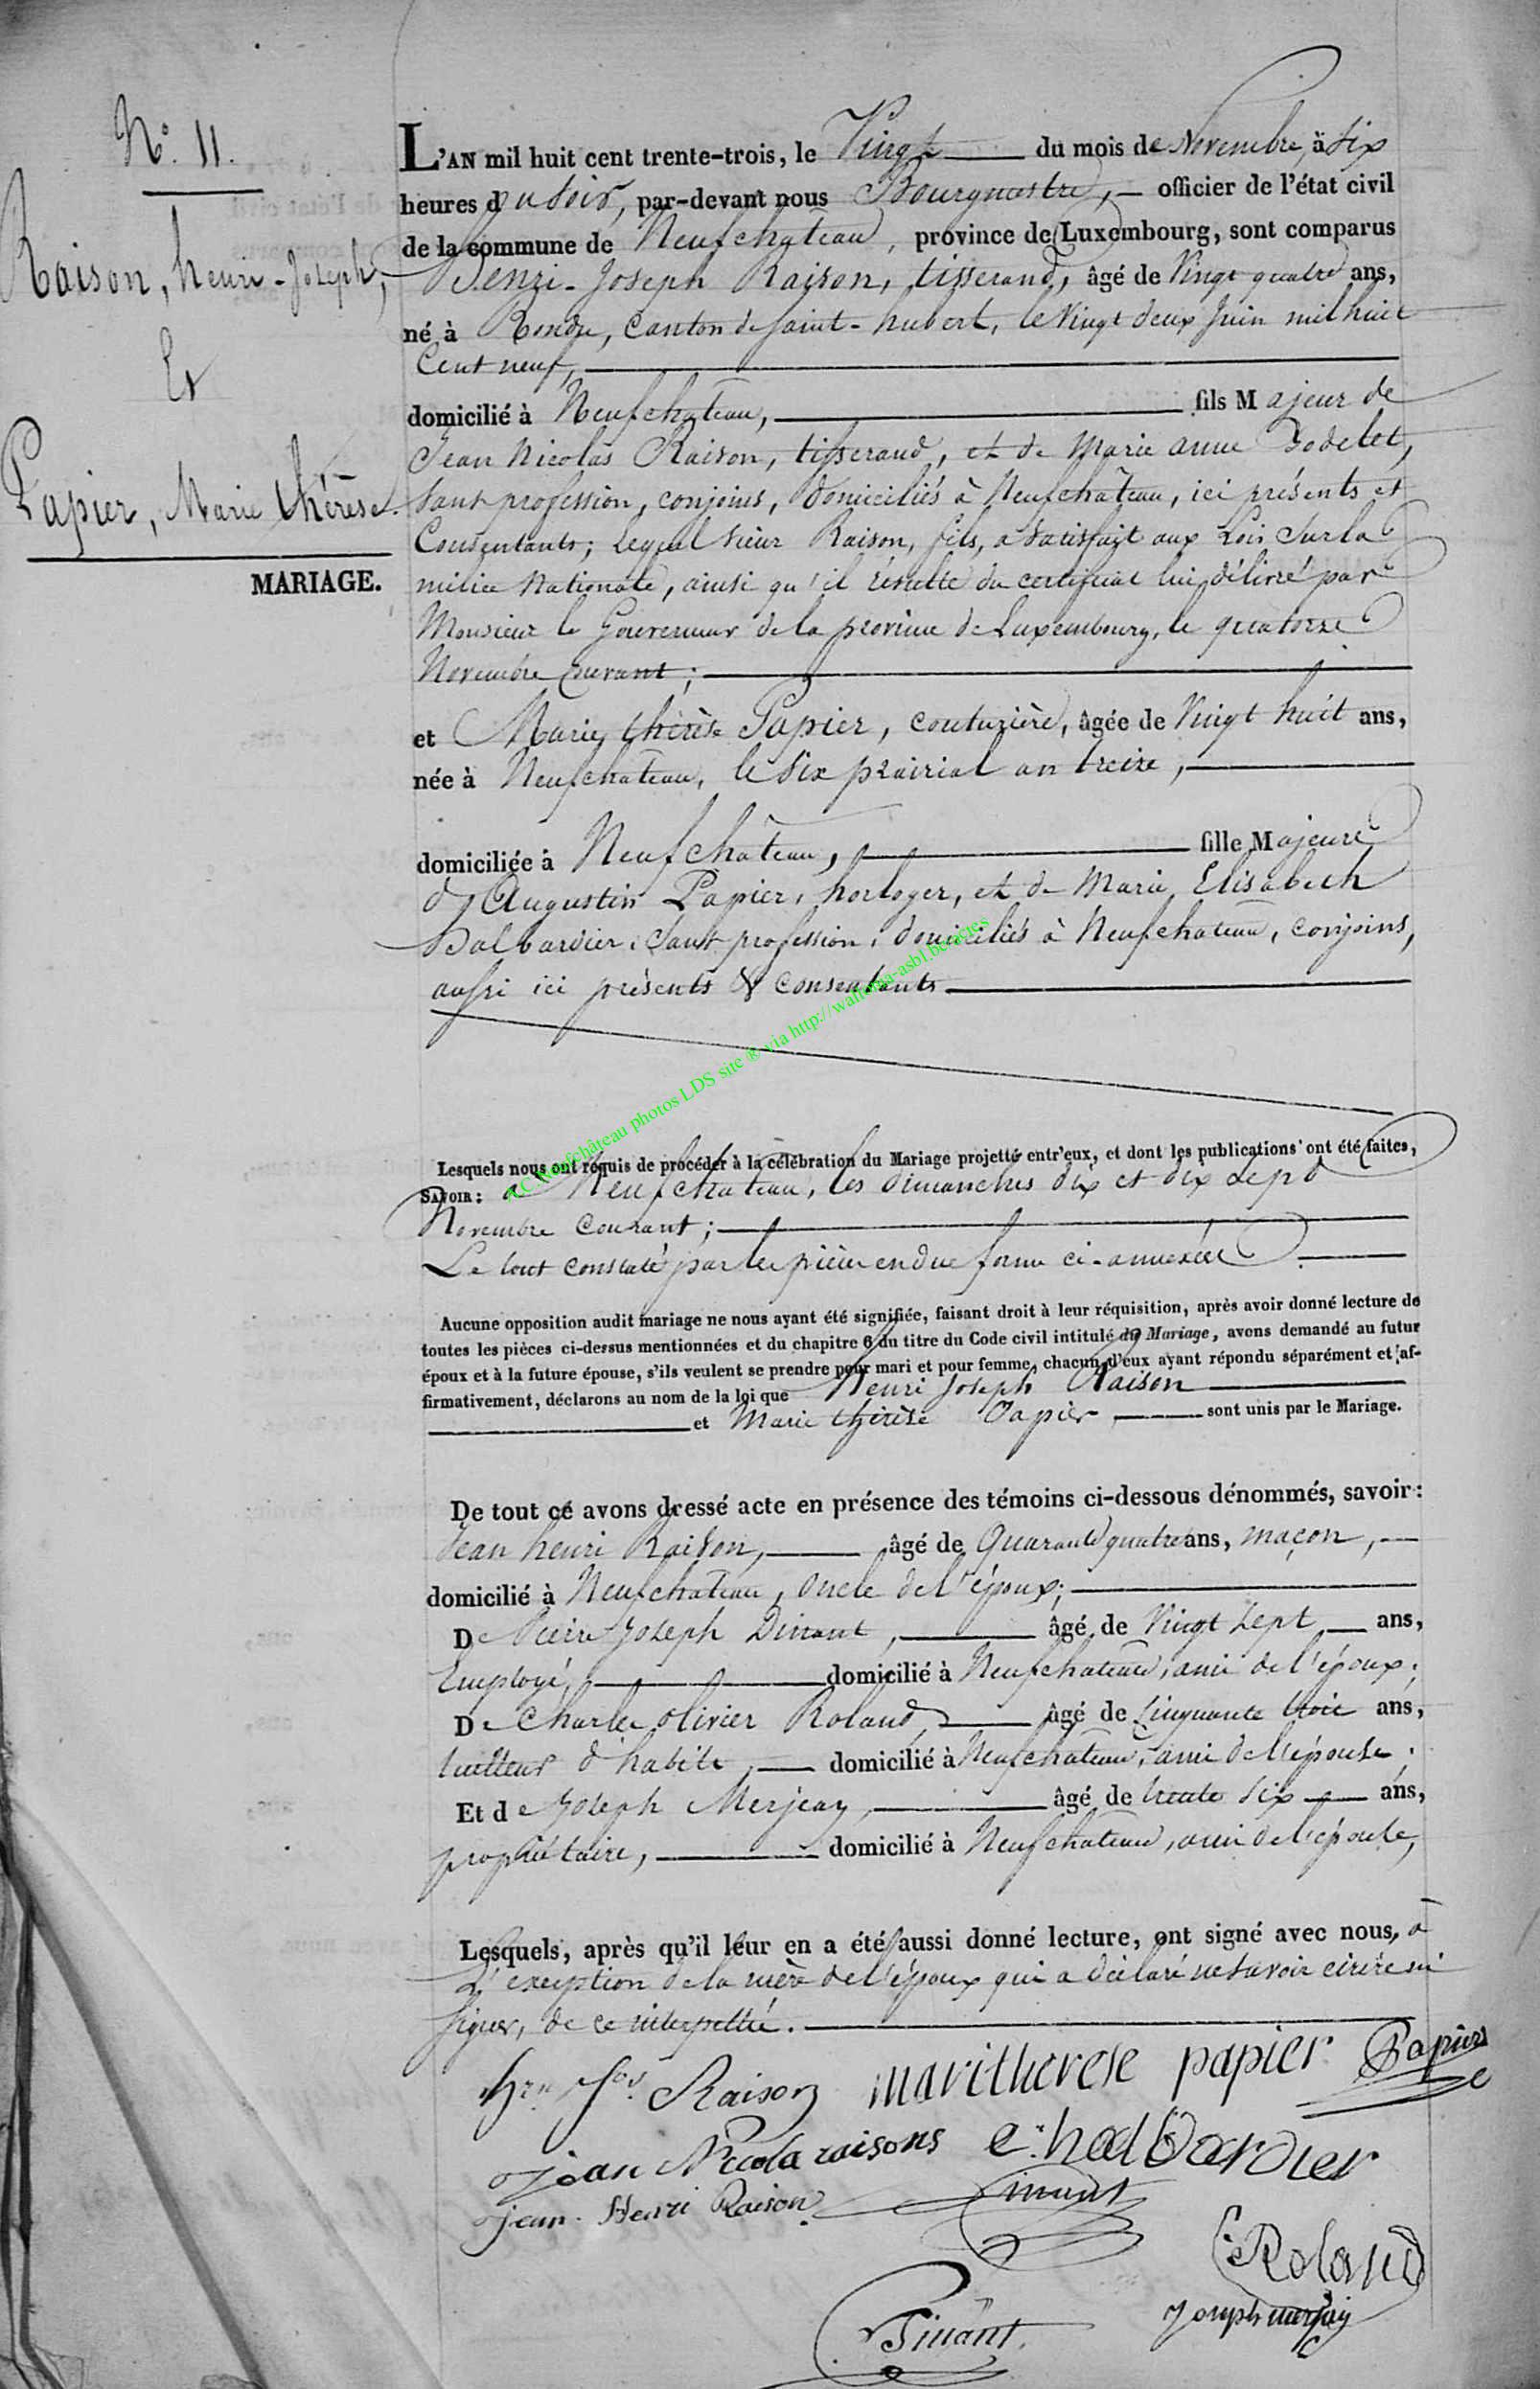 N.° 11.
Raison, henri-Joseph,
Et
Papier, Marie thérèse.
MARIAGE.
L'AN mil huit cent trente-trois, le Vingt du mois de Novembre, à Six
heures du soir, par-devant nous Bourgmestre, officier de l'état civil
de la commune de Neufchateau, province de Luxembourg, sont comparus
Henri-Joseph Raison, tisserand, âgé de Vingt quatre ans,
né à canton de saint-hubert, le Vingt deux Juin mil huit
Cent neuf,
domicilié à Neufchateau, fils Majeur de
Jean Nicolas Raison, tisserand, et de Marie anne Godelet,
sans profession, conjoins, domiciliés à Neufchâteau, ici présents et
Consentants; lequel sieur Raison, fils, a satisfait aux Lois sur la
milice Nationale, ainsi qu'il résulte du certificat lui délivré par
Monsieur le Gouverneur de la province de Luxembourg, le quatorze
Novembre Courant;
et Marie thérèse Papier, couturière, âgée de Vingt huit ans,
née à Neufchateau, le six prairial an treize,
domiciliée à Neufchâteau, fille Majeure
d'Augustin Papier, horloger, et de Marie Elisabeth
Halbardier, sans profession, domiciliés à Neufchateau, conjoins,
aussi ici présents & consentants
RC Neufchâteau photos LDS site ® via http://wallonia-asbl.be/actes
Lesquels nous ont requis de procéder à la célébration du Mariage projetté entr'eux, et dont les publications ont été faites,
SAVOIR: à Neufchateau, les dimanches dix et dix sept
Novembre Courant;
Le tout constaté par les pièces en due forme ci-annexées.
Aucune opposition audit mariage ne nous ayant été signifiée, faisant droit à leur réquisition, après avoir donné lecture de
toutes les pièces ci-dessus mentionnées et du chapitre 6 du titre du Code civil intitulé du Mariage, avons demandé au futur
époux et à la future épouse, s'ils veulent se prendre pour mari et pour femme, chacun d'eux ayant répondu séparément et af-
firmativement, déclarons au nom de la loi que Henri Joseph Raison
et Marie thérèse Papier sont unis par le Mariage.
De tout ce avons dressé acte en présence des témoins ci-dessous dénommés, savoir:
Jean henri Raison, âgé de Quarante quatre ans, maçon,
domicilié à Neufchateau, oncle de l'époux;
De Pierre Joseph Dinant, âgé de Vingt sept ans,
Employé, domicilié à Neufchateau, ami de l'époux;
De Charles olivier Roland, âgé de Cinquante trois ans,
tailleur d'habits, domicilié à Neufchateau, ami de l'épouse;
Et de Joseph Merjeay, âgé de trente six ans,
propriétaire, domicilié à Neufchateau, ami de l'épouse,
Lesquels, après qu'il leur en a été aussi donné lecture, ont signé avec nous, à
L'exception de la mère de l'époux qui a déclaré ne savoir écrire ni
signer, de ce interpellée.
hri Jos. Raison maritherese papier Papier
jean Nicola raisons e: halbardier
jean-Henri Raison Dinant
C. Roland
Joseph merjay